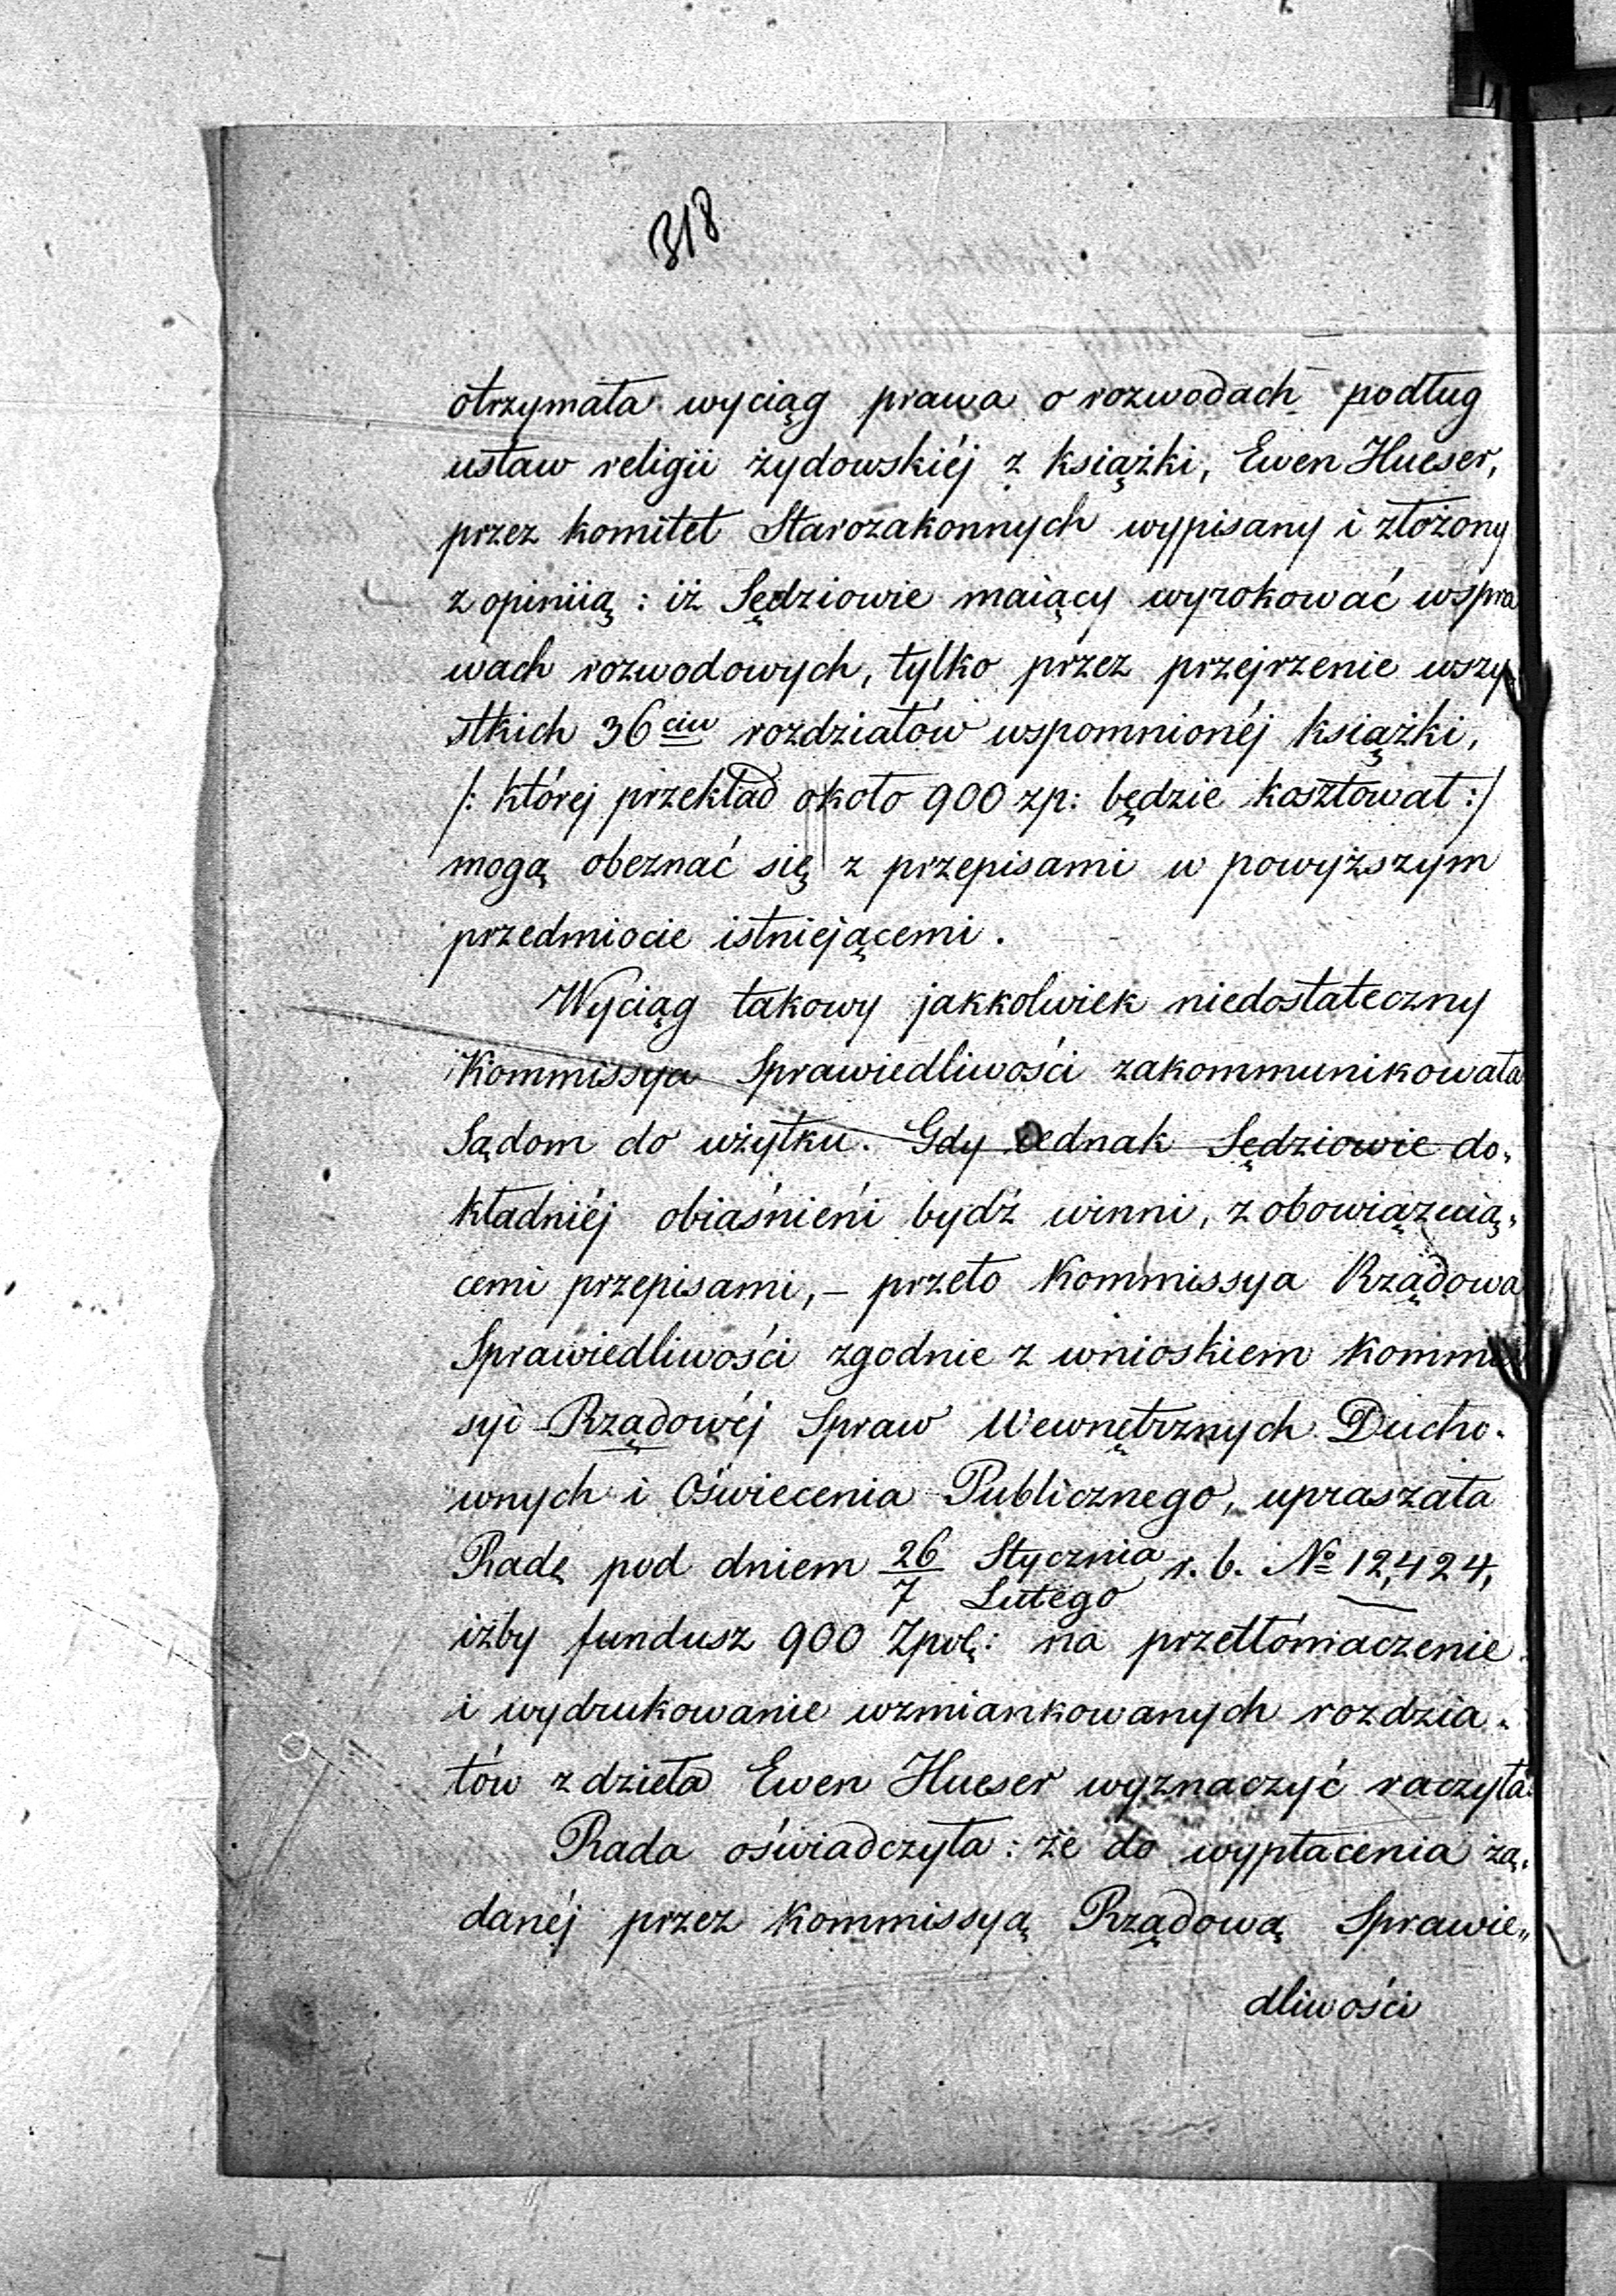 318
otrzymała wyciąg prawa o rozwodach podług
ustaw religii żydowskiéj z książki, Ewen Hueser,
przez komitet Starozakonnych wypisany i złożony
z opiniią: iż Sędziowie maiący wyrokować wspra
wach rozwodowych, tylko przez przejrzenie wszy
stkich 36 ciu rozdziałów wspomnionéj książki,
/: której przekład około 900 zp: będzie kosztował :/
mogą obeznać się z przepisami w powyższym
przedmiocie istniejącemi.
Wyciąg takowy jakkolwiek niedostateczny
Kommissya Sprawiedliwości zakommunikowała
Sądom do użytku. Gdy Jednak Sędziowie do„
kładniéj obiaśnieńi bydź winni, z obowiązuią„
cemi przepisami, – przeto Kommissya Rządowa
Sprawiedliwości zgodnie z wnioskiem Kommis
syi Rządowéj Spraw Wewnętrznych Ducho„
wnych i Oświecenia Publicznego, upraszała
Radę pod dniem 26/7 Stycznia/Lutego r. b. № 12,424,
iżby fundusz 900 Zpol: na przetłómaczenie
i wydrukowanie wzmiankowanych rozdzia„
łów z dzieła Ewen Hueser wyznaczyć raczyła.
Rada oświadczyła: że do wypłacenia żą„
danéj przez Kommissyą Rządową Sprawie„
dliwości